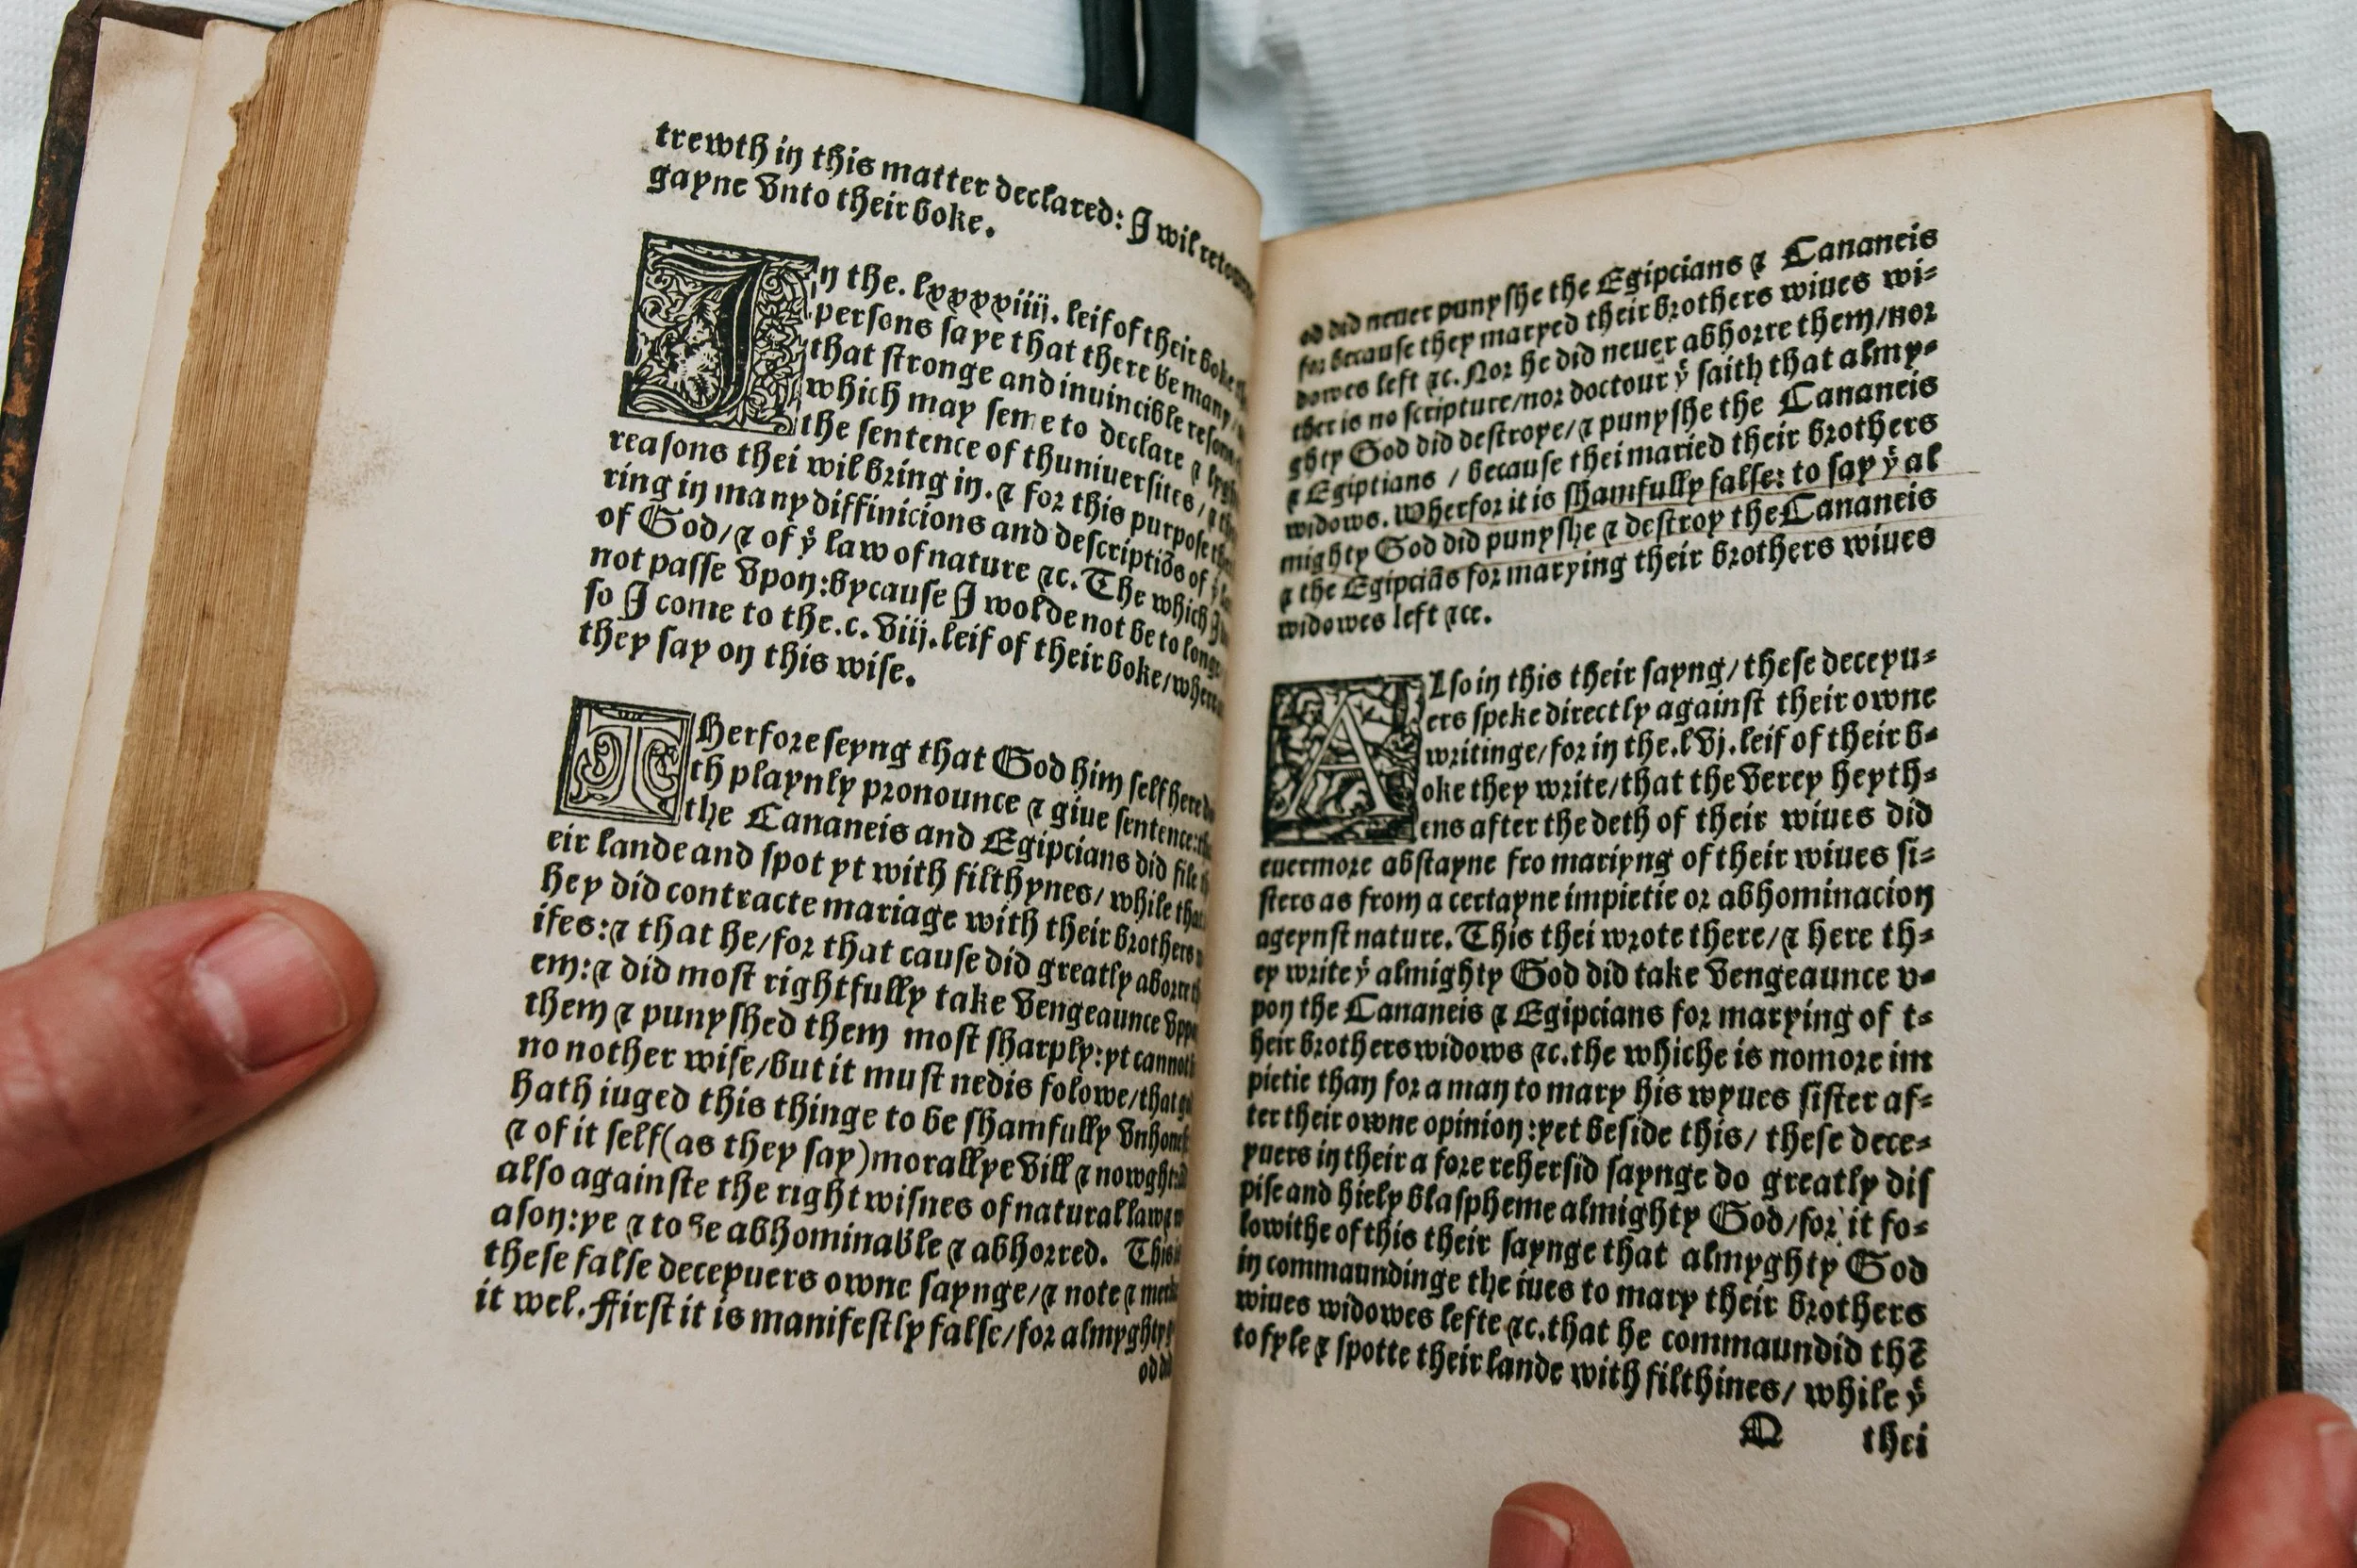 trewth in this matter declared: I wil
gayne vnto their boke.
In the. lxxxxiiij. leif of their boke
persons saye that there be many
that stronge and inuincible
which may seme to declare ⁊
the sentence of thuniuersites,
reasons thei wil bring in. ⁊ for this purpose
ring in many diffinicions and descriptiõs of
of God/⁊ of yͤ law of nature ⁊c. The which I
not passe vpon: bycause I wolde not be to
so I come to the. c. viij. leif of their boke/
they say on this wise.
Therfore seyng that God him self
th playnly pronounce ⁊ giue sentence:
the Cananeis and Egipcians did file
eir lande and spot yt with filthynes/ while
hey did contracte mariage with their brothers
ifes:⁊ that he/for that cause did greatly
em:⁊ did most rightfully take vengeaunce
them ⁊ punyshed them most sharply: yt
no nother wise/but it must nedis folowe/that
hath iuged this thinge to be shamfully
⁊ of it self(as they say)morallye vill ⁊
also againste the right wisnes of natural
ason: ye ⁊ to be abhominable ⁊ abhorred.
these false deceyuers owne saynge/⁊ note ⁊
it wel. First it is manifestly false/for
od did neuer punyshe the Egipcians ⁊ Cananeis
for because they maryed their brothers wiues wi⸗
dowes left ⁊c. Nor he did neuer abhorre them/nor
ther is no scripture/nor doctour yͭ saith that almy⸗
ghty God did destroye/⁊ punyshe the Cananeis
⁊ Egiptians / because thei maried their brothers
widows. Wherfor it is shamfully false: to say yͭ al
mighty God did punyshe ⁊ destroy the Cananeis
⁊ the Egipciãs for marying their brothers wiues
widowes left ⁊ce.
Also in this their sayng/ these deceyu⸗
ers speke directly against their owne
writinge/for in the. lvj. leif of their b⸗
oke they write/that the verey heyth⸗
ens after the deth of their wiues did
euermore abstayne fro mariyng of their wiues si⸗
sters as from a certayne impietie or abhominacion
ageynst nature. This thei wrote there/⁊ here th⸗
ey write yͭ almighty God did take vengeaunce v⸗
pon the Cananeis ⁊ Egipcians for marying of t⸗
heir brothers widows ⁊c. the whiche is nomore im
pietie than for a man to mary his wyues sister af⸗
ter their owne opinion: yet beside this/ these dece⸗
yuers in their a fore rehersid saynge do greatly dis
pise and hiely blaspheme almighty God/for it fo⸗
lowithe of this their saynge that almyghty God
in commaundinge the iues to mary their brothers
wiues widowes lefte ⁊c. that he commaundid thẽ
to fyle ⁊ spotte their lande with filthines/ while yͭ
thei